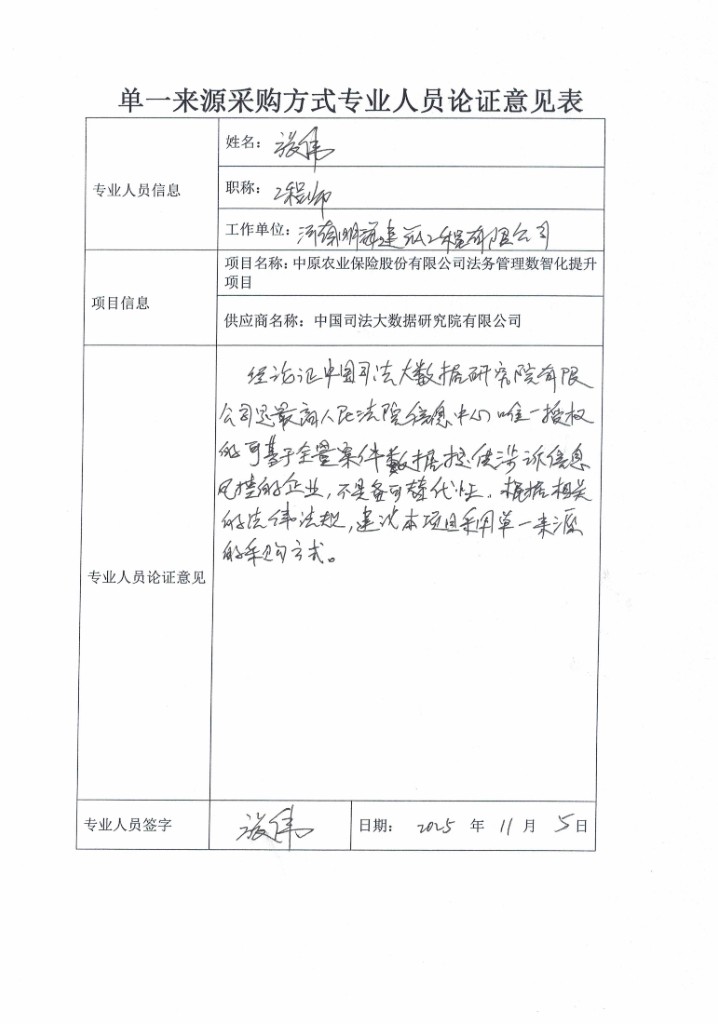 单一来源采购方式专业人员论证意见表
专业人员信息
姓名：
职称：工程师
工作单位：河南明海建筑工程有限公司
项目信息
项目名称：中原农业保险股份有限公司法务管理数智化提升
项目
供应商名称：中国司法大数据研究院有限公司
专业人员论证意见
经论证中国司法大数据研究院有限
公司是最高人民法院信息中心唯一授权
的可基于全量案件数据提供涉诉信息
风控的企业，不具备可替代性。根据相关
的法律法规，建议本项目采用单一来源
的采购方式。
专业人员签字
日期：2025 年 11 月 5 日